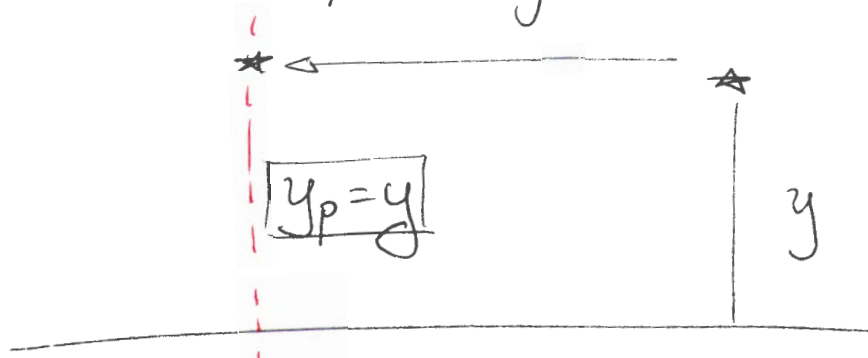 y_p = y
y